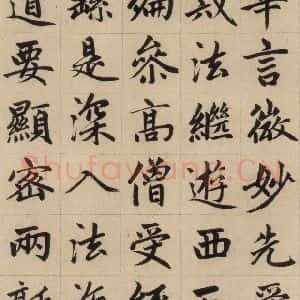 華言微妙先受
戒法繼遊西天
徧叅高僧受經
繇是深入法海
道要顯密兩融